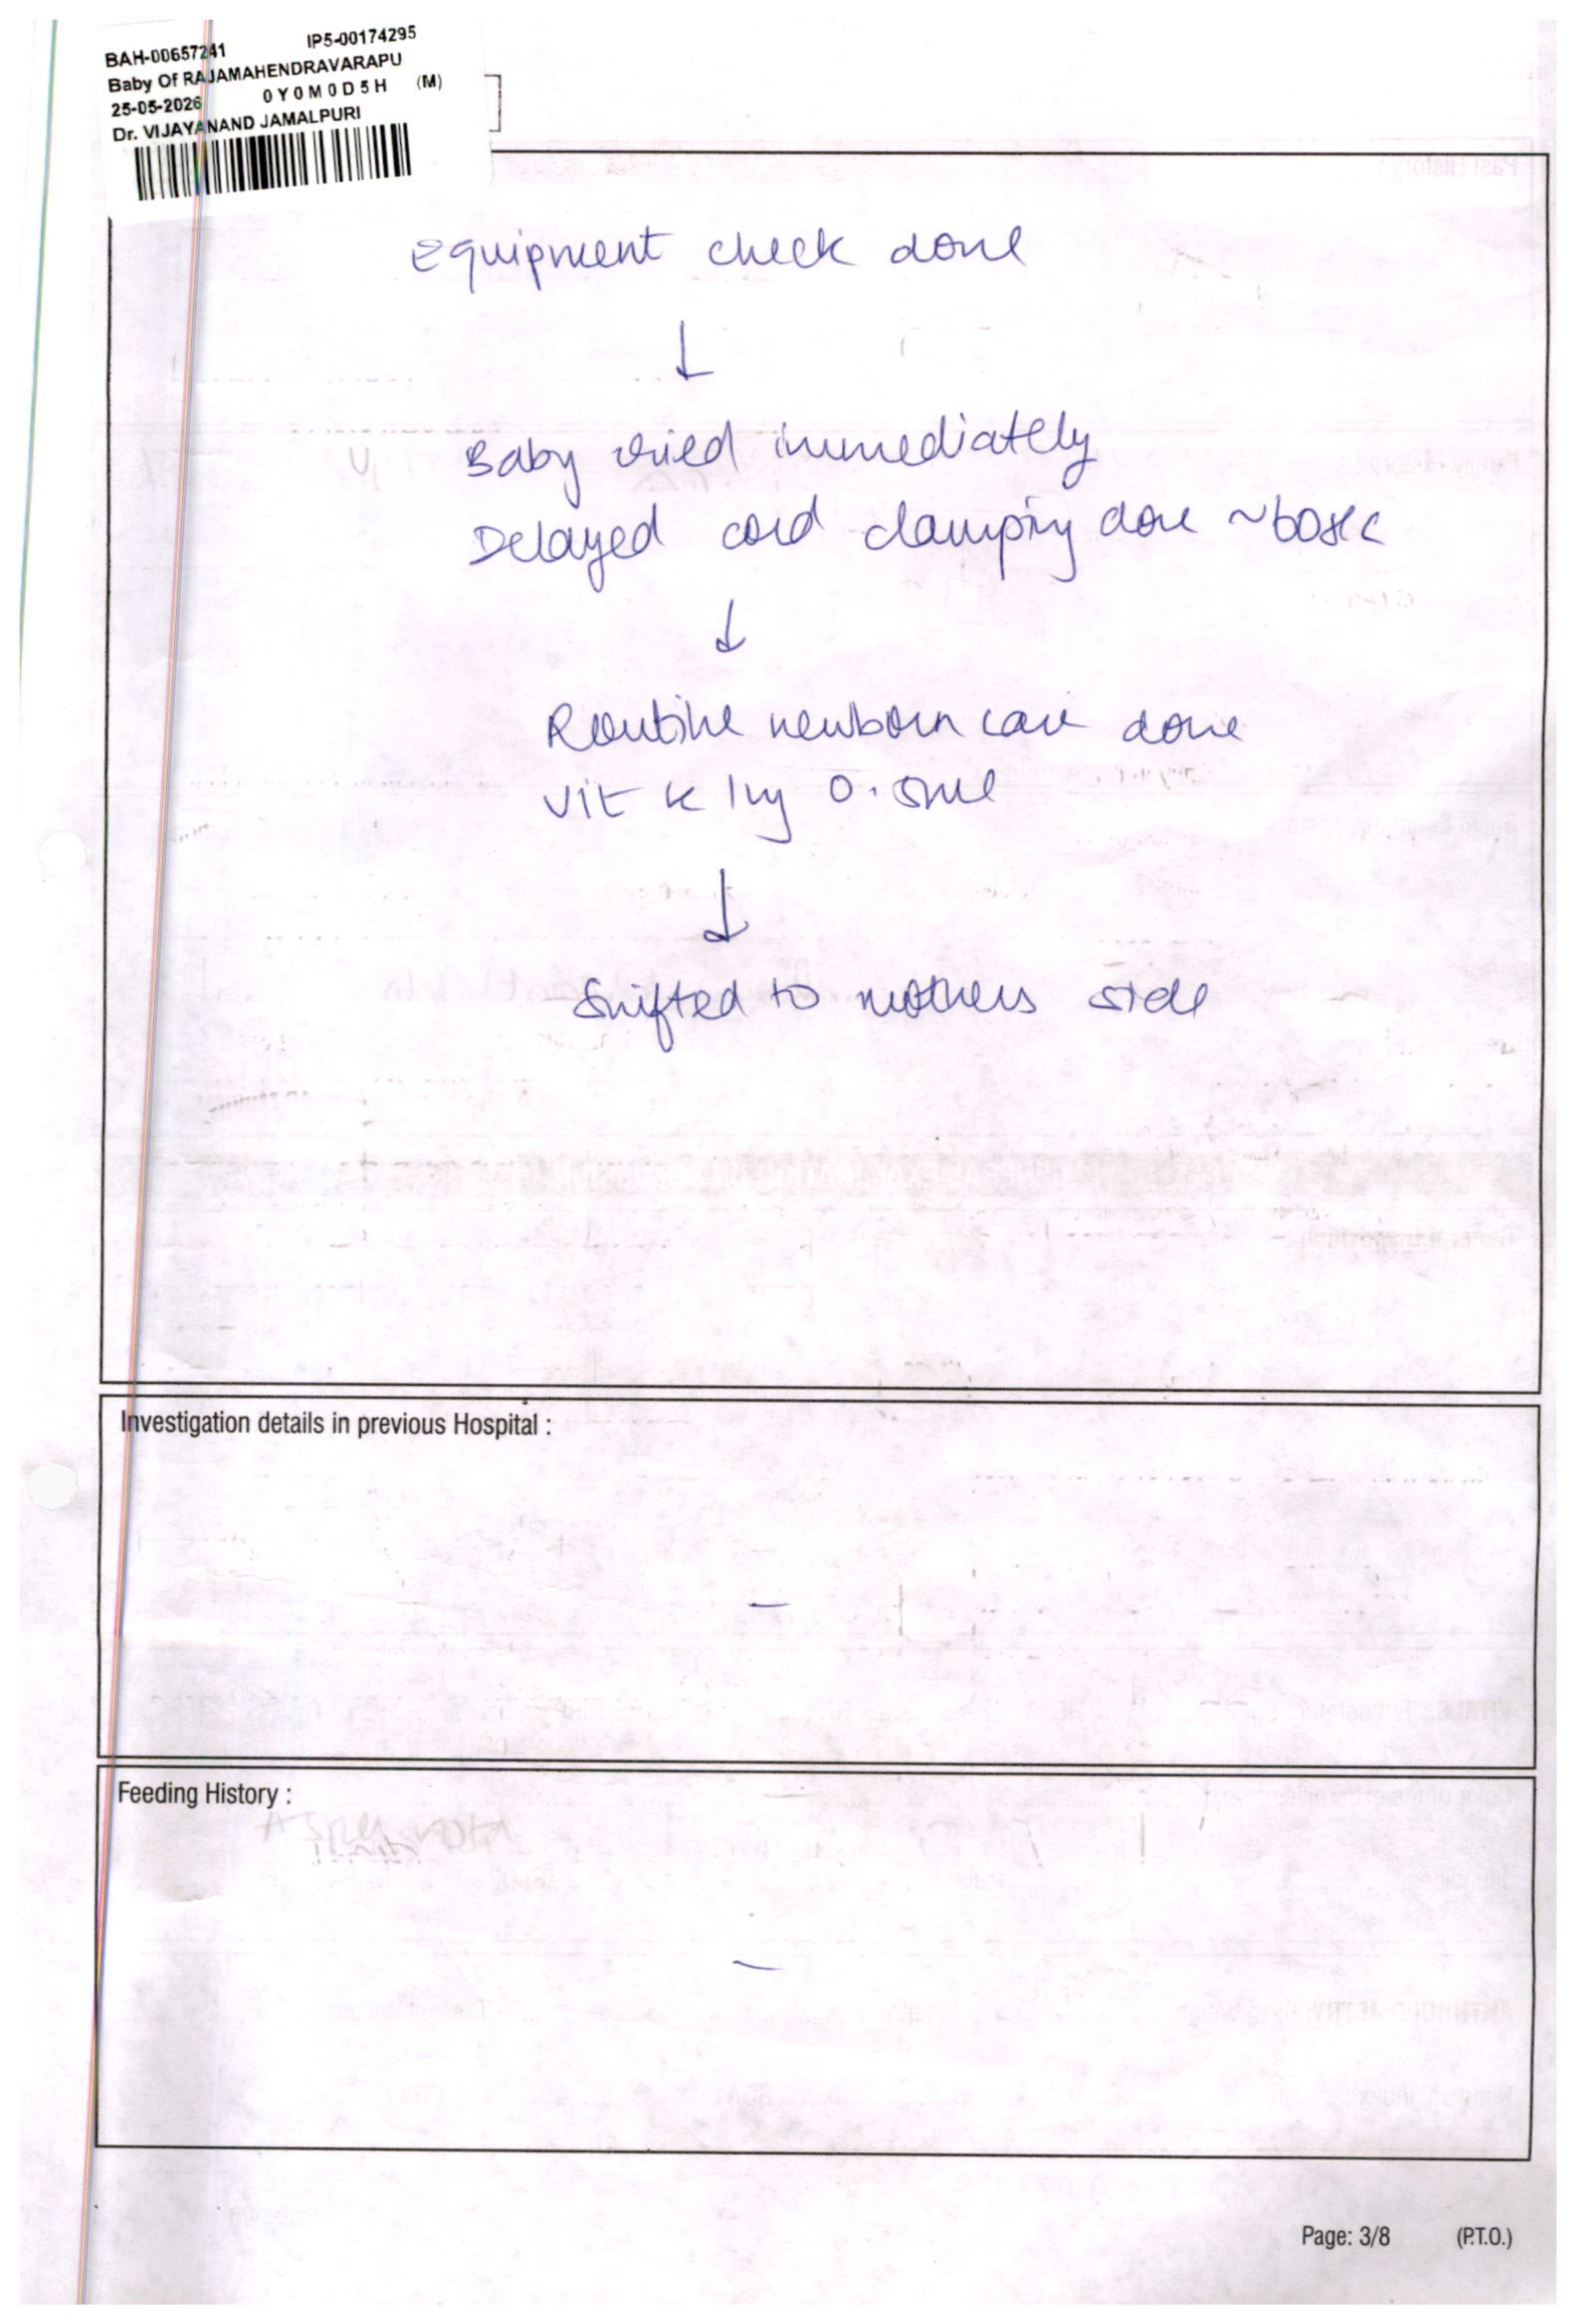 BAH-00657241 IP5-00174295
Baby Of RAJAMAHENDRAVARAPU
25-05-2026 0Y0M0D5H (M)
Dr. VIJAYANAND JAMALPURI
Equipment check done
↓
Baby dried immediately
Delayed cord clamping done ~60sec
↓
Routine newborn care done
Vit K 0.5ml
↓
Shifted to mothers side
Investigation details in previous Hospital :
—
Feeding History :
—
Page: 3/8 (P.T.O.)